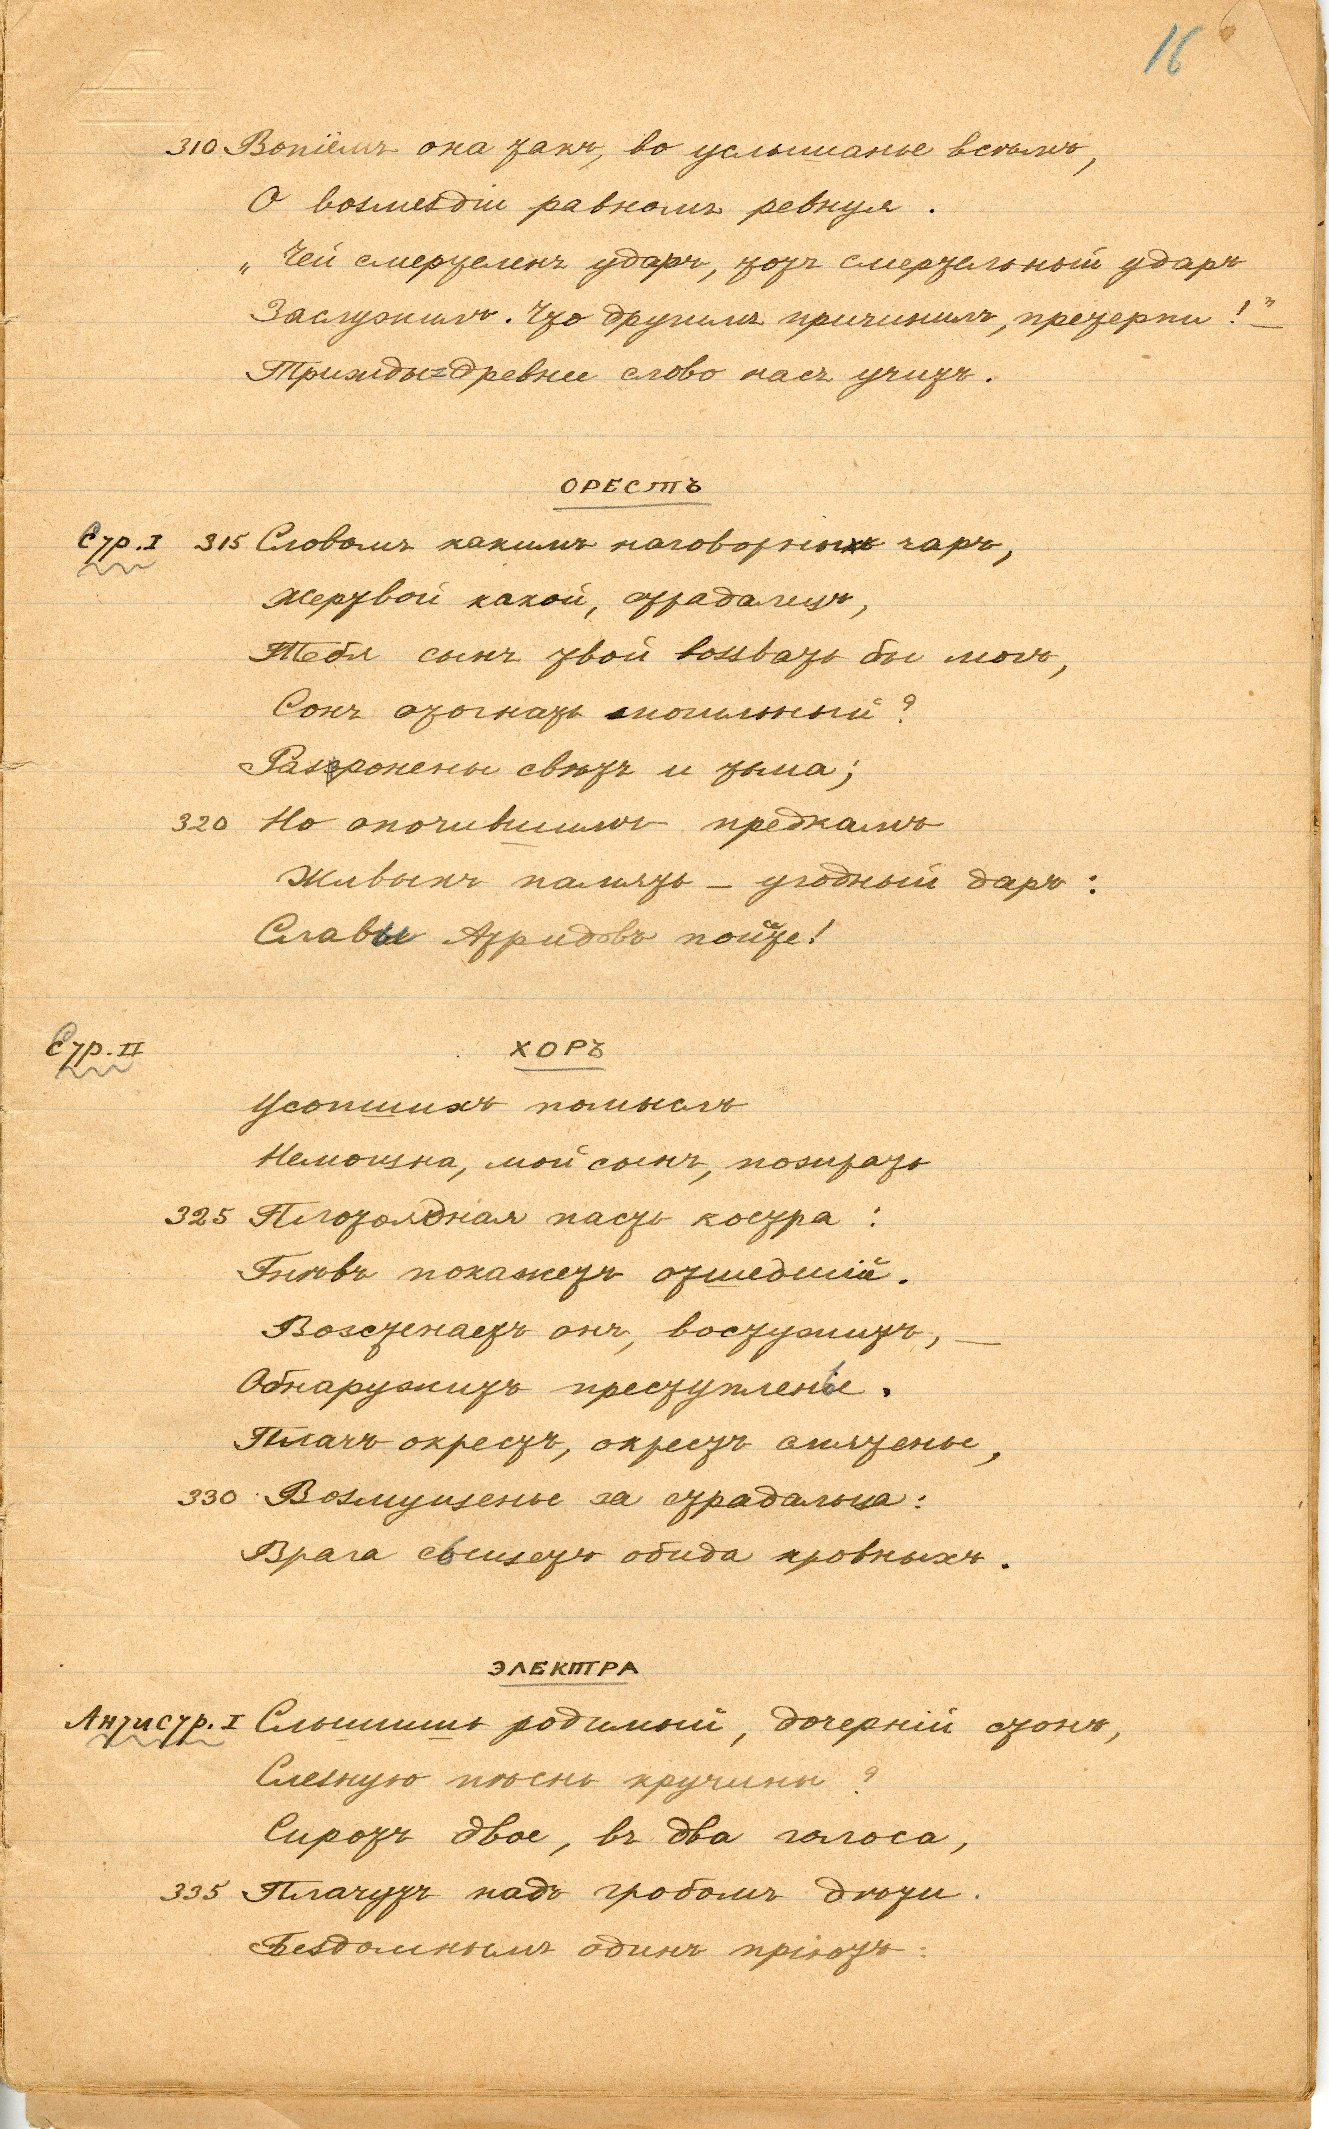 16
310 Вопіетъ она такъ, во услышанье всѣмъ,
О возмездіи равномъ ревнуя.
„Чей смертеленъ ударъ, тотъ смертельный ударъ
Заслужилъ. Что другимъ причинилъ, претерпи!" —
Трижды=древнее слово насъ учитъ.
ОРЕСТЪ
Стр. I 315 Словомъ какимъ наговорныхъ чаръ,
Жертвой какой, страдалецъ,
Тебя сынъ твой воззвать бы могъ,
Сонъ отогнать могильный?
Расторжены свѣтъ и тьма;
320 Но опочившимъ предкамъ
Живыхъ память — угодный даръ:
Славы Атридовъ пойте!
Стр. II ХОРЪ
Усопшихъ помыслъ
Немощна, мой сынъ, пожрать
325 Плотоядная пасть костра:
Гнѣвъ покажетъ отшедшій.
Возстенаетъ онъ, востужитъ, —
Обнаружитъ преступленье.
Плачъ окрестъ, окрестъ смятенье,
330 Возмущенье за страдальца:
Врага сыщетъ обида кровныхъ.
ЭЛЕКТРА
Антистр. I Слышишь родимый, дочерній стонъ,
Слезную пѣснь кручины?
Сиротъ двое, въ два голоса,
335 Плачутъ надъ гробомъ дѣти.
Бездомнымъ одинъ пріютъ: